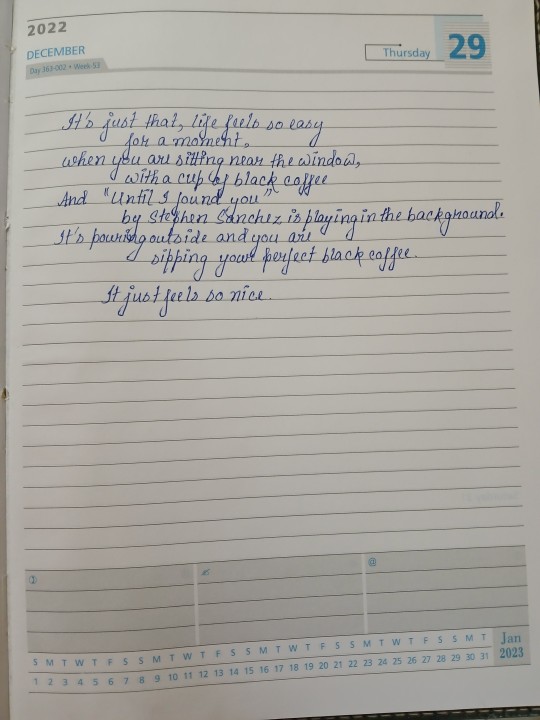 2022
DECEMBER
Day 363-002 • Week-53
Thursday
29
It's just that, life feels so easy
for a moment,
when you are sitting near the window,
with a cup of black coffee
And "Until I found you"
by Stephen Sanchez is playing in the background.
It's pouring outside and you are
sipping your perfect black coffee.
It just feels so nice.
S M T W T F S S M T W T F S S M T W T F S S M T W T F S S M T
1 2 3 4 5 6 7 8 9 10 11 12 13 14 15 16 17 18 19 20 21 22 23 24 25 26 27 28 29 30 31
Jan
2023